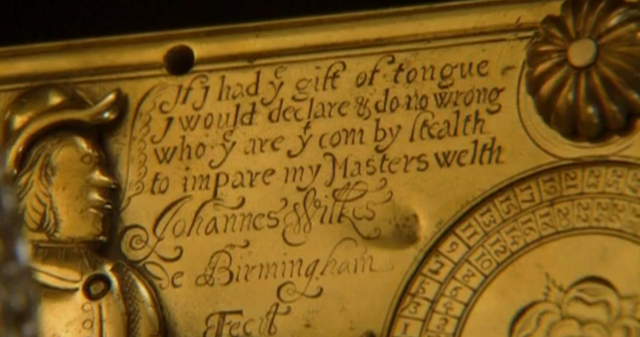 If J had yͤ gift of tongue
J would declare & do no wrong
who yͤ are yͭ com by stealth
to impare my Masters welth
Johannes Wilkes
De Birmingham
Fecit